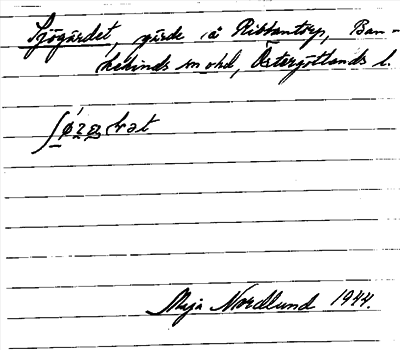 Sjögärdet, gärde i Ribbantorp, Ban-
kekinds sn o hd, Östergötlands l.
Maja Nordlund 1944.